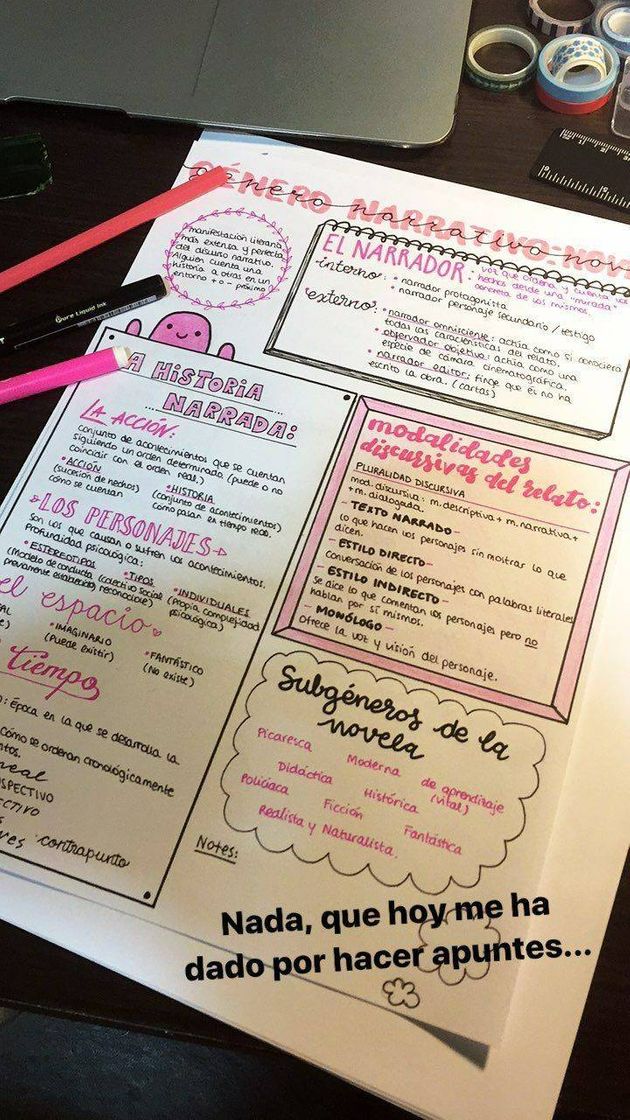 GÉNERO NARRATIVO: NOV
género narrativo: nov
manifestación literaria
más extensa y perfecta
del discurso narrativo.
Alguien cuenta una
historia a otros en un
entorno + o - próximo
EL NARRADOR: voz que ordena y cuenta los
hechos desde una "mirada"
concreta de los mismos.
interno: • narrador protagonista
• narrador personaje secundario / testigo
externo: • narrador omnisciente: actúa como si conociera
todas las características del relato.
• observador objetivo: actúa como una
especie de cámara cinematográfica.
• narrador editor: finge que él no ha
escrito la obra. (cartas)
Pure Liquid Ink
A HISTORIA
NARRADA:
LA ACCIÓN:
conjunto de acontecimientos que se cuentan
siguiendo un orden determinado (puede o no
coincidir con el orden real.)
• ACCIÓN
(sucesión de hechos)
cómo se cuentan
• HISTORIA
(conjunto de acontecimientos)
como pasan es tiempo real.
LOS PERSONAJES
Son los que causan o sufren los acontecimientos.
Profundidad psicológica:
• ESTEREOTIPOS
(Modelo de conducta
previamente establecido)
• TIPOS
(colectivo social
reconocible)
• INDIVIDUALES
(Propia complejidad
psicológica)
el espacio
• IMAGINARIO
(Puede existir)
• FANTÁSTICO
(No existe)
tiempo
: Época en la que se desarrolla la
cómo se ordenan cronológicamente
ntos.
neal
SPECTIVO
ECTIVO
res contrapunto
modalidades
discursivas del relato:
PLURALIDAD DISCURSIVA
mod. discursiva: m. descriptiva + m. narrativa +
+ m. dialogada.
- TEXTO NARRADO -
lo que hacen los personajes sin mostrar lo que
dicen.
- ESTILO DIRECTO -
Conversación de los personajes con palabras literales
- ESTILO INDIRECTO -
Se dice lo que comentan los personajes pero no
hablan por sí mismos.
- MONÓLOGO -
Ofrece la voz y visión del personaje.
Subgéneros de la
novela
Picaresca Moderna de aprendizaje
(vital)
Didáctica
Policíaca Histórica
Ficción Fantástica
Realista y Naturalista.
Notes:
Nada, que hoy me ha
dado por hacer apuntes...